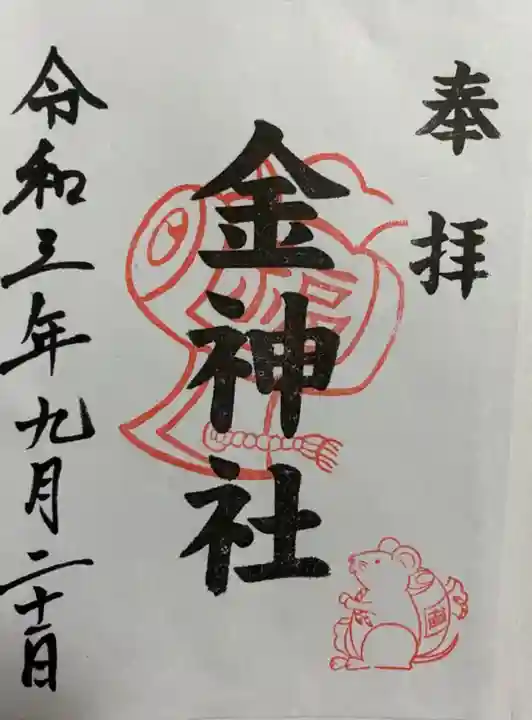 奉拝
金神社
令和三年九月二十二日